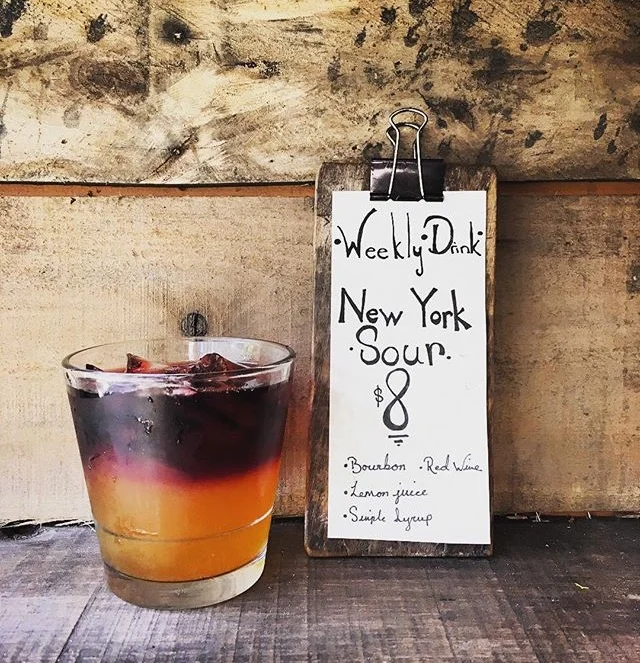 ·Weekly·Drink·
New York
·Sour·
$8
·Bourbon ·Red Wine
·Lemon juice
·Simple Syrup